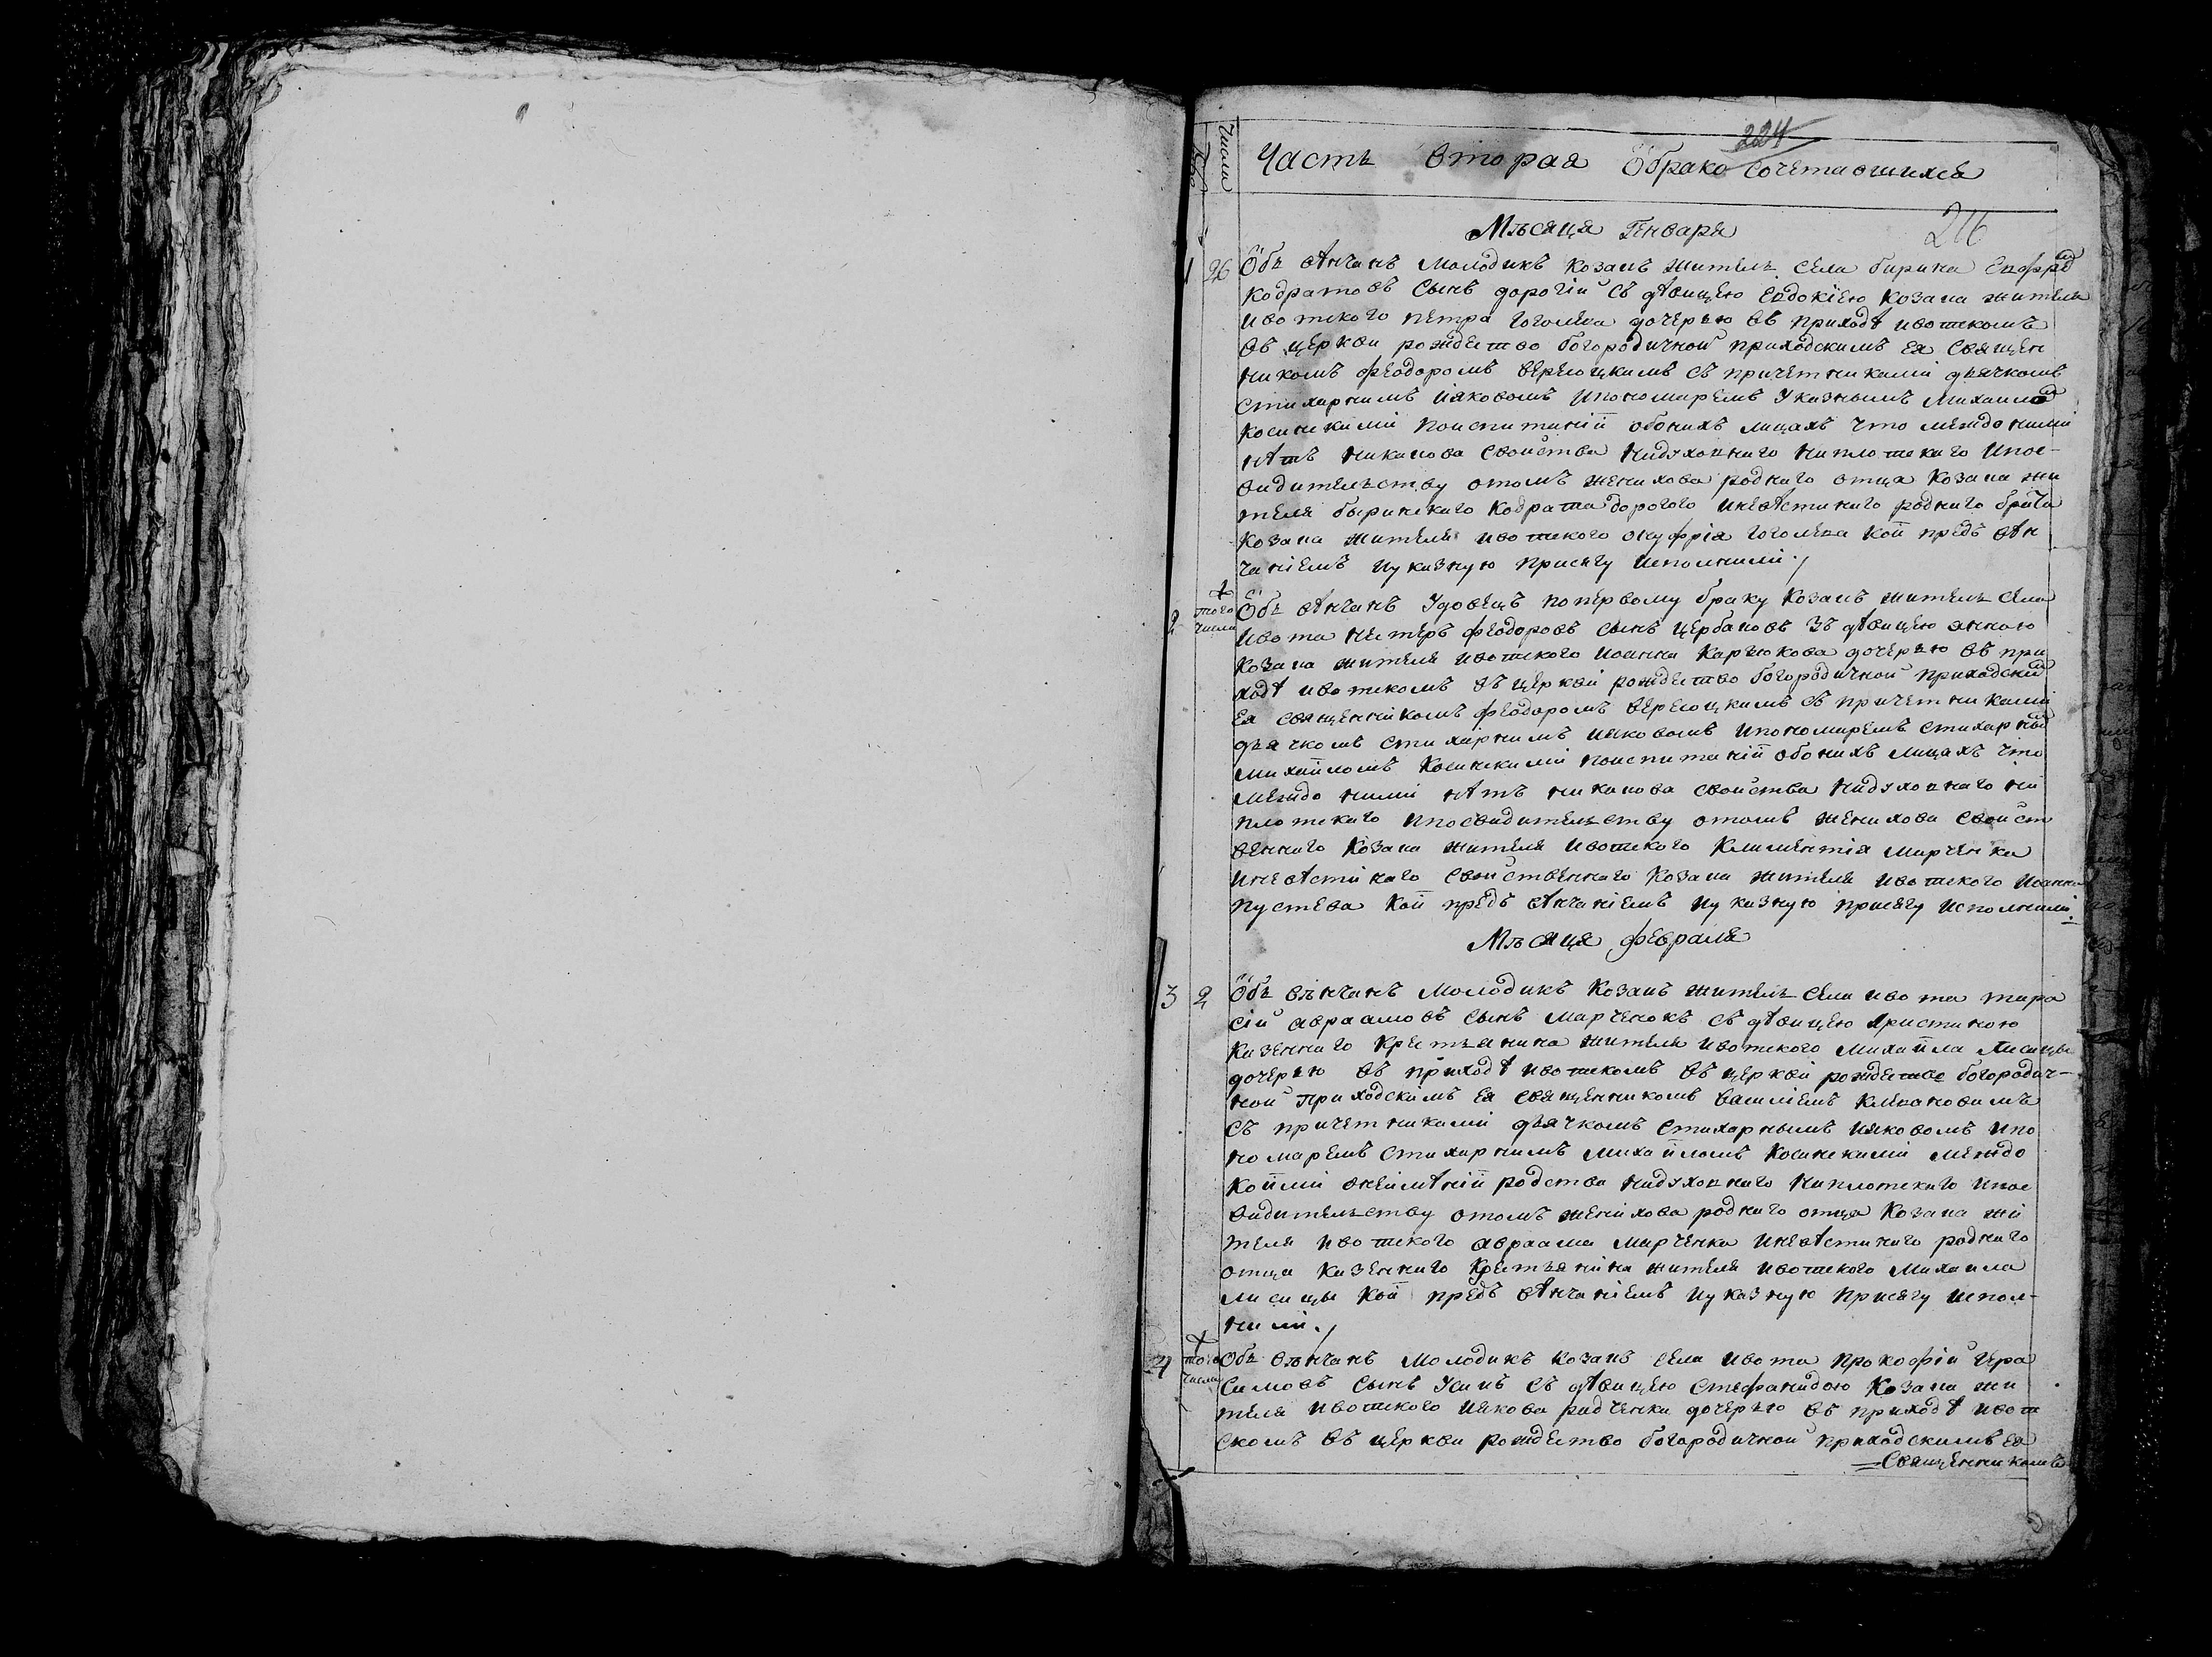 Числа
224
Часть Вторая О бракосочетавшихся
Мѣсяца Генваря
216
1 26 Обвѣнчанъ Молодикъ Козакъ житель села бирина
Кодратовъ Сынъ дорогій съ дѣвицею Евдокіею Козака жителя
ивотского петра гоголева дочерью въ приходѣ ивотскомъ
въ церкви рождество богородичной приходскимъ ея Священ
никомъ феодоромъ верецкимъ съ причетниками дьячкомъ
стихарнимъ Іяковомъ ипономаремъ Указнымъ Михаиломъ
Косинскими поиспитаніи обоихъ лицахъ что междо ними
нѣтъ никакова свойства нидуховнаго ниплотскаго ипос-
видительству отомъ женихова роднаго отца Козака жи
теля биринскаго Кодрата дорогого иневѣстинаго роднаго брата
Козака жителя ивотского онуфрія гоголева кои предъ вѣн
чаніемъ иуказную присягу исполнили
2 того числа Обвѣнчанъ Удовецъ поперьвому браку Козакъ житель села
ивота нестеръ феодоровъ сынъ щербаковъ зъ дѣвицею анною
Козака жителя ивотского иоанна Карзюкова дочерью въ при
ходѣ ивотскомъ въ церкви рождество богородичной приходскимъ
ея священникомъ феодоромъ верецкимъ съ причетниками
дьячкомъ стихарнимъ Іяковомъ ипономаремъ стихарнимъ
михайломъ Косинскими поиспитаніи обоихъ лицахъ что
междо ними нѣтъ никакова свойства нидуховнаго ни
плотскаго ипосвидительству отомъ женихова свойст
веннаго Козака жителя ивотского Климентія марченка
иневѣстинаго свойственнаго Козака жителя ивотского Иоанна
пустева кои предъ вѣнчаніемъ иуказную присягу исполнили
Мѣсяца февраля
3 2 Обвѣнчанъ Молодикъ Козакъ житель села ивота тара
сій авраамовъ сынъ марченокъ съ дѣвицею христиною
Казеннаго Крестьянина жителя ивотского михаила лисицы
дочерью въ приходѣ ивотскомъ въ церкви рождество богородич-
ной приходскимъ ея священникомъ василіемъ
съ причетниками дьячкомъ стихарнымъ Іяковомъ ипо
номаремъ стихарнимъ михайломъ Косинскими междо
коими неимѣніи родства нидуховнаго ниплотскаго ипос
видительству отомъ женихова роднаго отца Козака жи
теля ивотского авраама марченка иневѣстинаго роднаго
отца Казеннаго Крестьянина жителя ивотского Михаила
лисицы кои предъ вѣнчаніемъ иуказную присягу испол-
нили
4 того числа Обвѣнчанъ Молодикъ козакъ села ивота прокофій гера
симовъ сынъ Усикъ съ дѣвицею стефанидою Козака жи
теля ивотского Іякова радченка дочерью въ приходѣ ивот
скомъ въ церкви рождество богородичной приходскимъ ея
Священникомъ